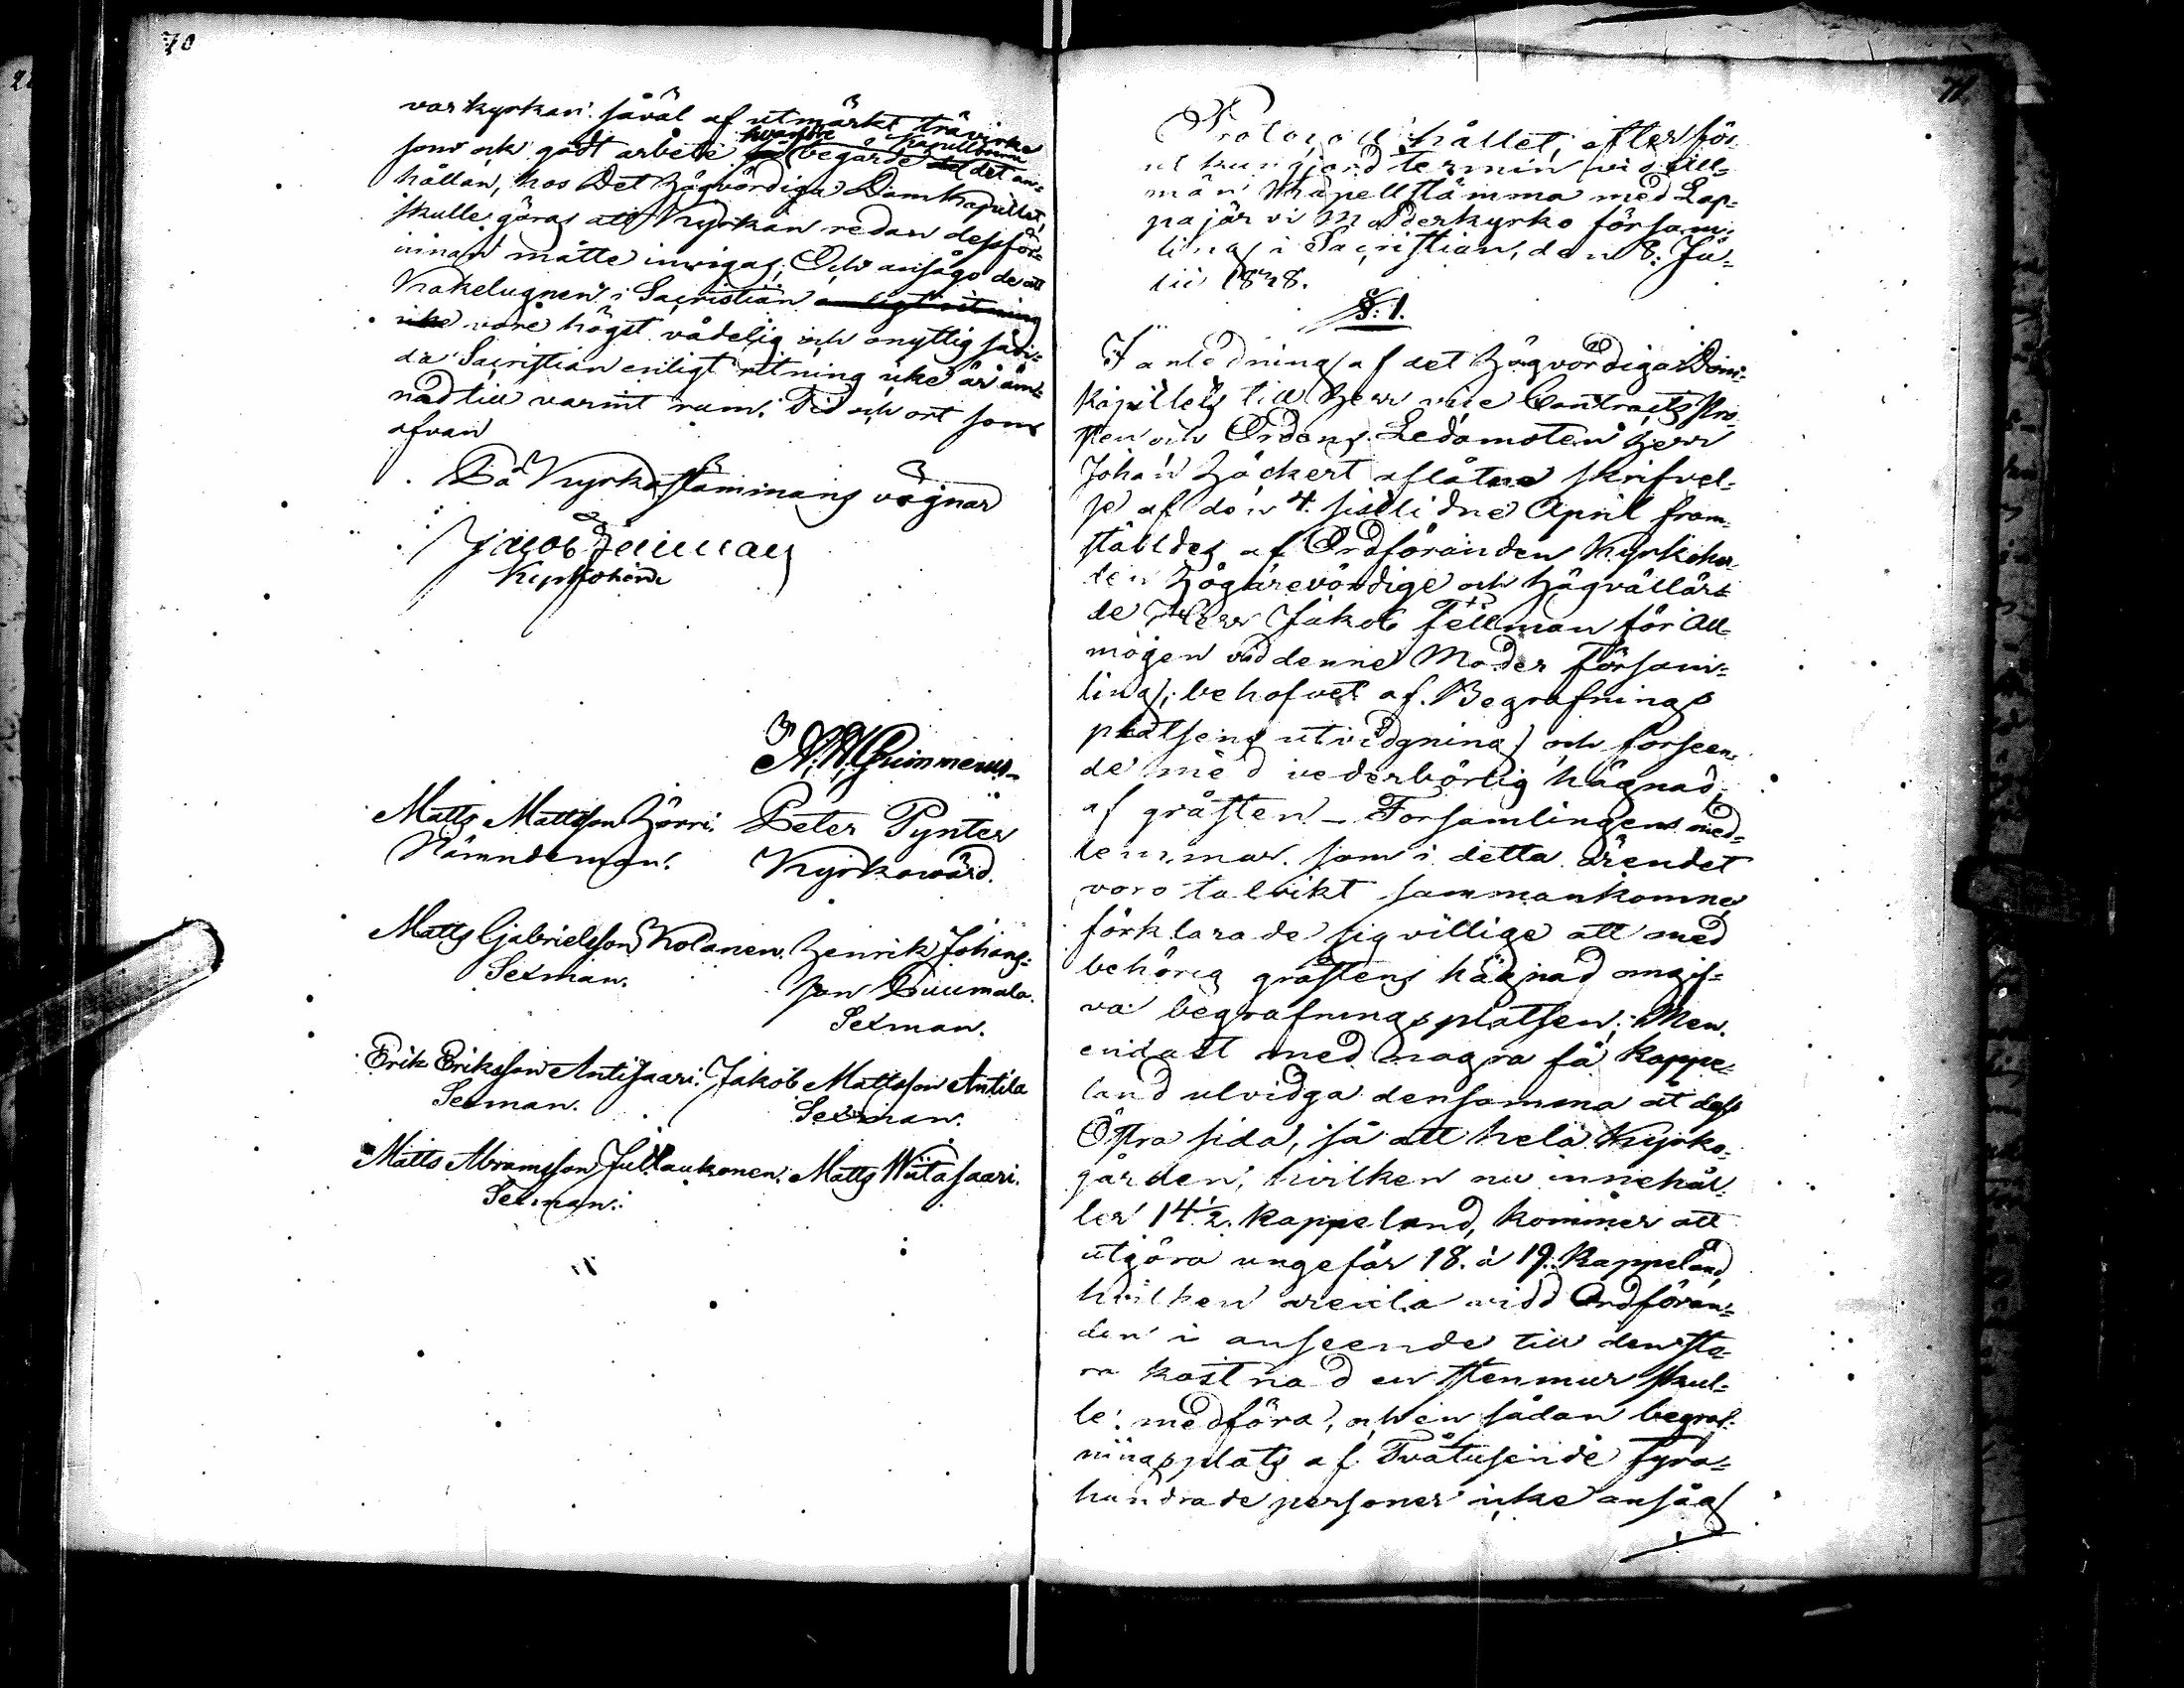 70
var kyrkan såväl af utmärkt trävirke
som ock godt arbete hvarföre begärde Kapellboerne det an-
hållan, hos Det Högvördiga DomKapitlet,
skulle göras att Kyrkan redan dessför-
innan måtte invigas; Och ansågo de att
Kakelugnen i Sacristian enligt ritning
icke vore högst vådelig och onyttig såvi-
da Sacristian enligt ritning icke är äm-
nad till varmt rum. Tid och ort som
ofvan
På Kyrkostämmans vägnar
Jacob Fellman
Kyrkoherde
Matts Mattsson Peter Pynter
Nämndeman. Kyrkowärd.
Matts Gabrielsson Kolanen. Henrik Johans-
Sexman. son Duumala.
Sexman.
Erik Eriksson Antisaari. Jakob Mattsson Antila
Sexman. Sexman.
Matts Abramsson Matts Wiitasaari.
Sexman.
71
Protocoll hållet, efter för-
ut kungjord termin vid All-
män Kapellstämma med Lap-
pajärvi Moderkyrko försam-
ling i Sacristian, den 8. Ju-
lii 1848.
§. 1.
I anledning af det Högvördiga Dom-
kapitlets till Herr vice Contracts Pro-
sten och Ordens Ledamoten Herr
Johan Häckert aflåtne skrifvel-
se af den 4. sistlidne April fram-
ställdes af Ordföranden Kyrkoher-
den Högärevördige och Högvällär-
de Herr Jakob Fellman för All-
mogen vid denne Moder Försam-
ling, behofvet af Begrafnings
platsens utvidgning och förseen-
de med vederbörlig hägnad
af gråsten — Församlingens med-
lemmar som i detta ärendet
voro talrikt sammankomne
förklarade sig villige att med
behörig gråstens hägnad omgif-
va begrafningsplatsen; Men
endast med några få kappe-
land utvidga densamma åt dess
Östra sida, så att hela Kyrko-
gården, hvilken nu innehål-
ler 14 1/2 kappeland, kommer att
utgöra ungefär 18. à 19. Kappeland,
hvilken vidd Ordföran-
den i anseende till den sto-
ra kostnad en stenmur skul-
le medföra, och en sådan begraf-
ningsplats af Tvåtusende fyra-
hundrade personer icke ansåg